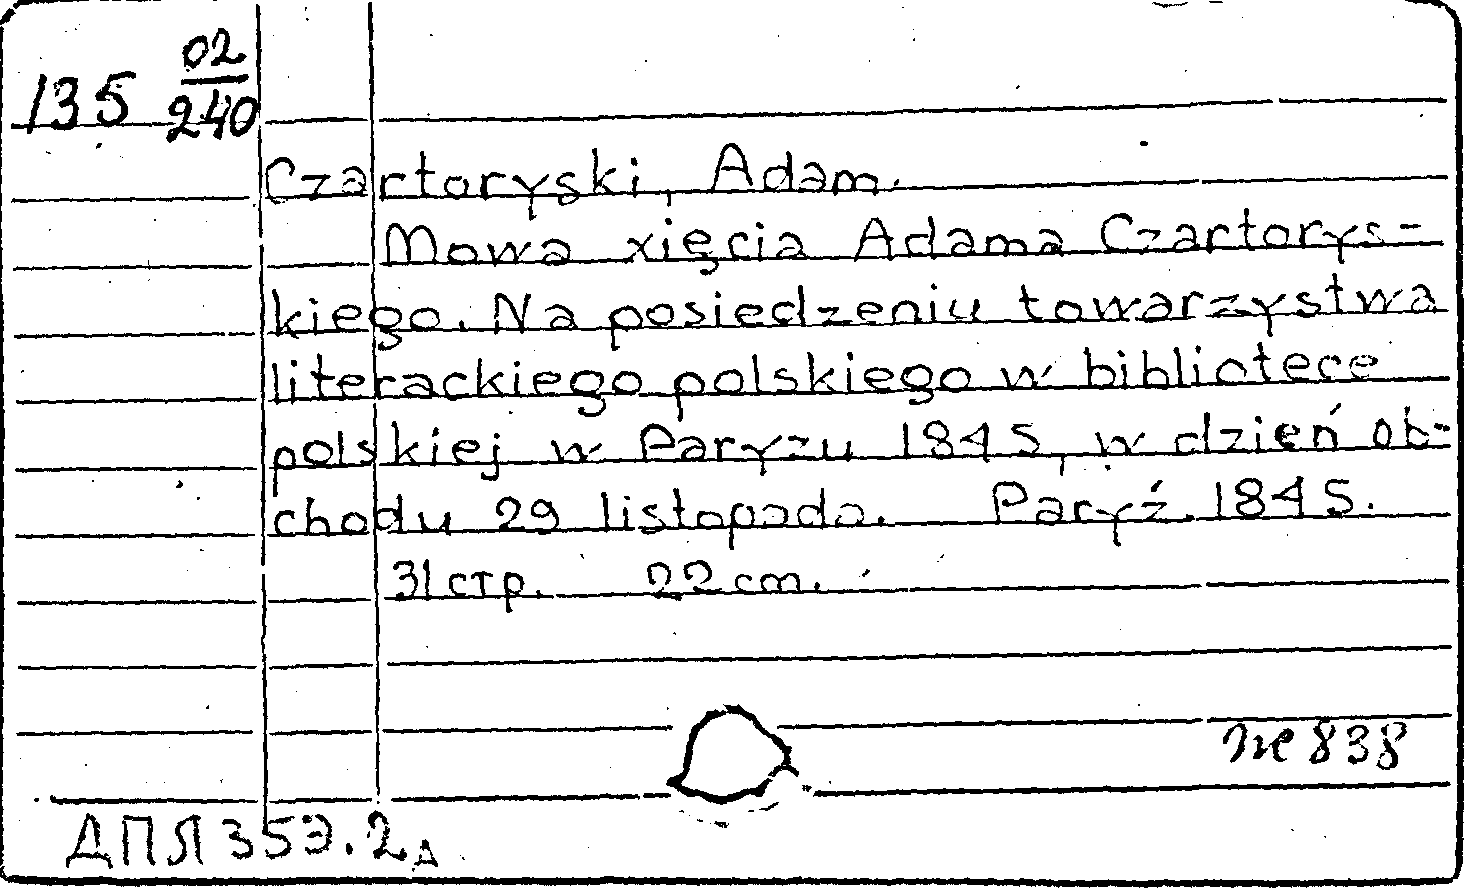 135 02/240
Czartoryski, Adam.
Mowa xięcia Adama Czartorys-
kiego. Na posiedzeniu towarzystwa
literackiego polskiego w bibliotece
polskiej w Paryzu 1845, w dzień ob-
chodu 29 listopada. Paryź. 1845.
31 стр. 22 cm.
838
ДПЛ 353.2д